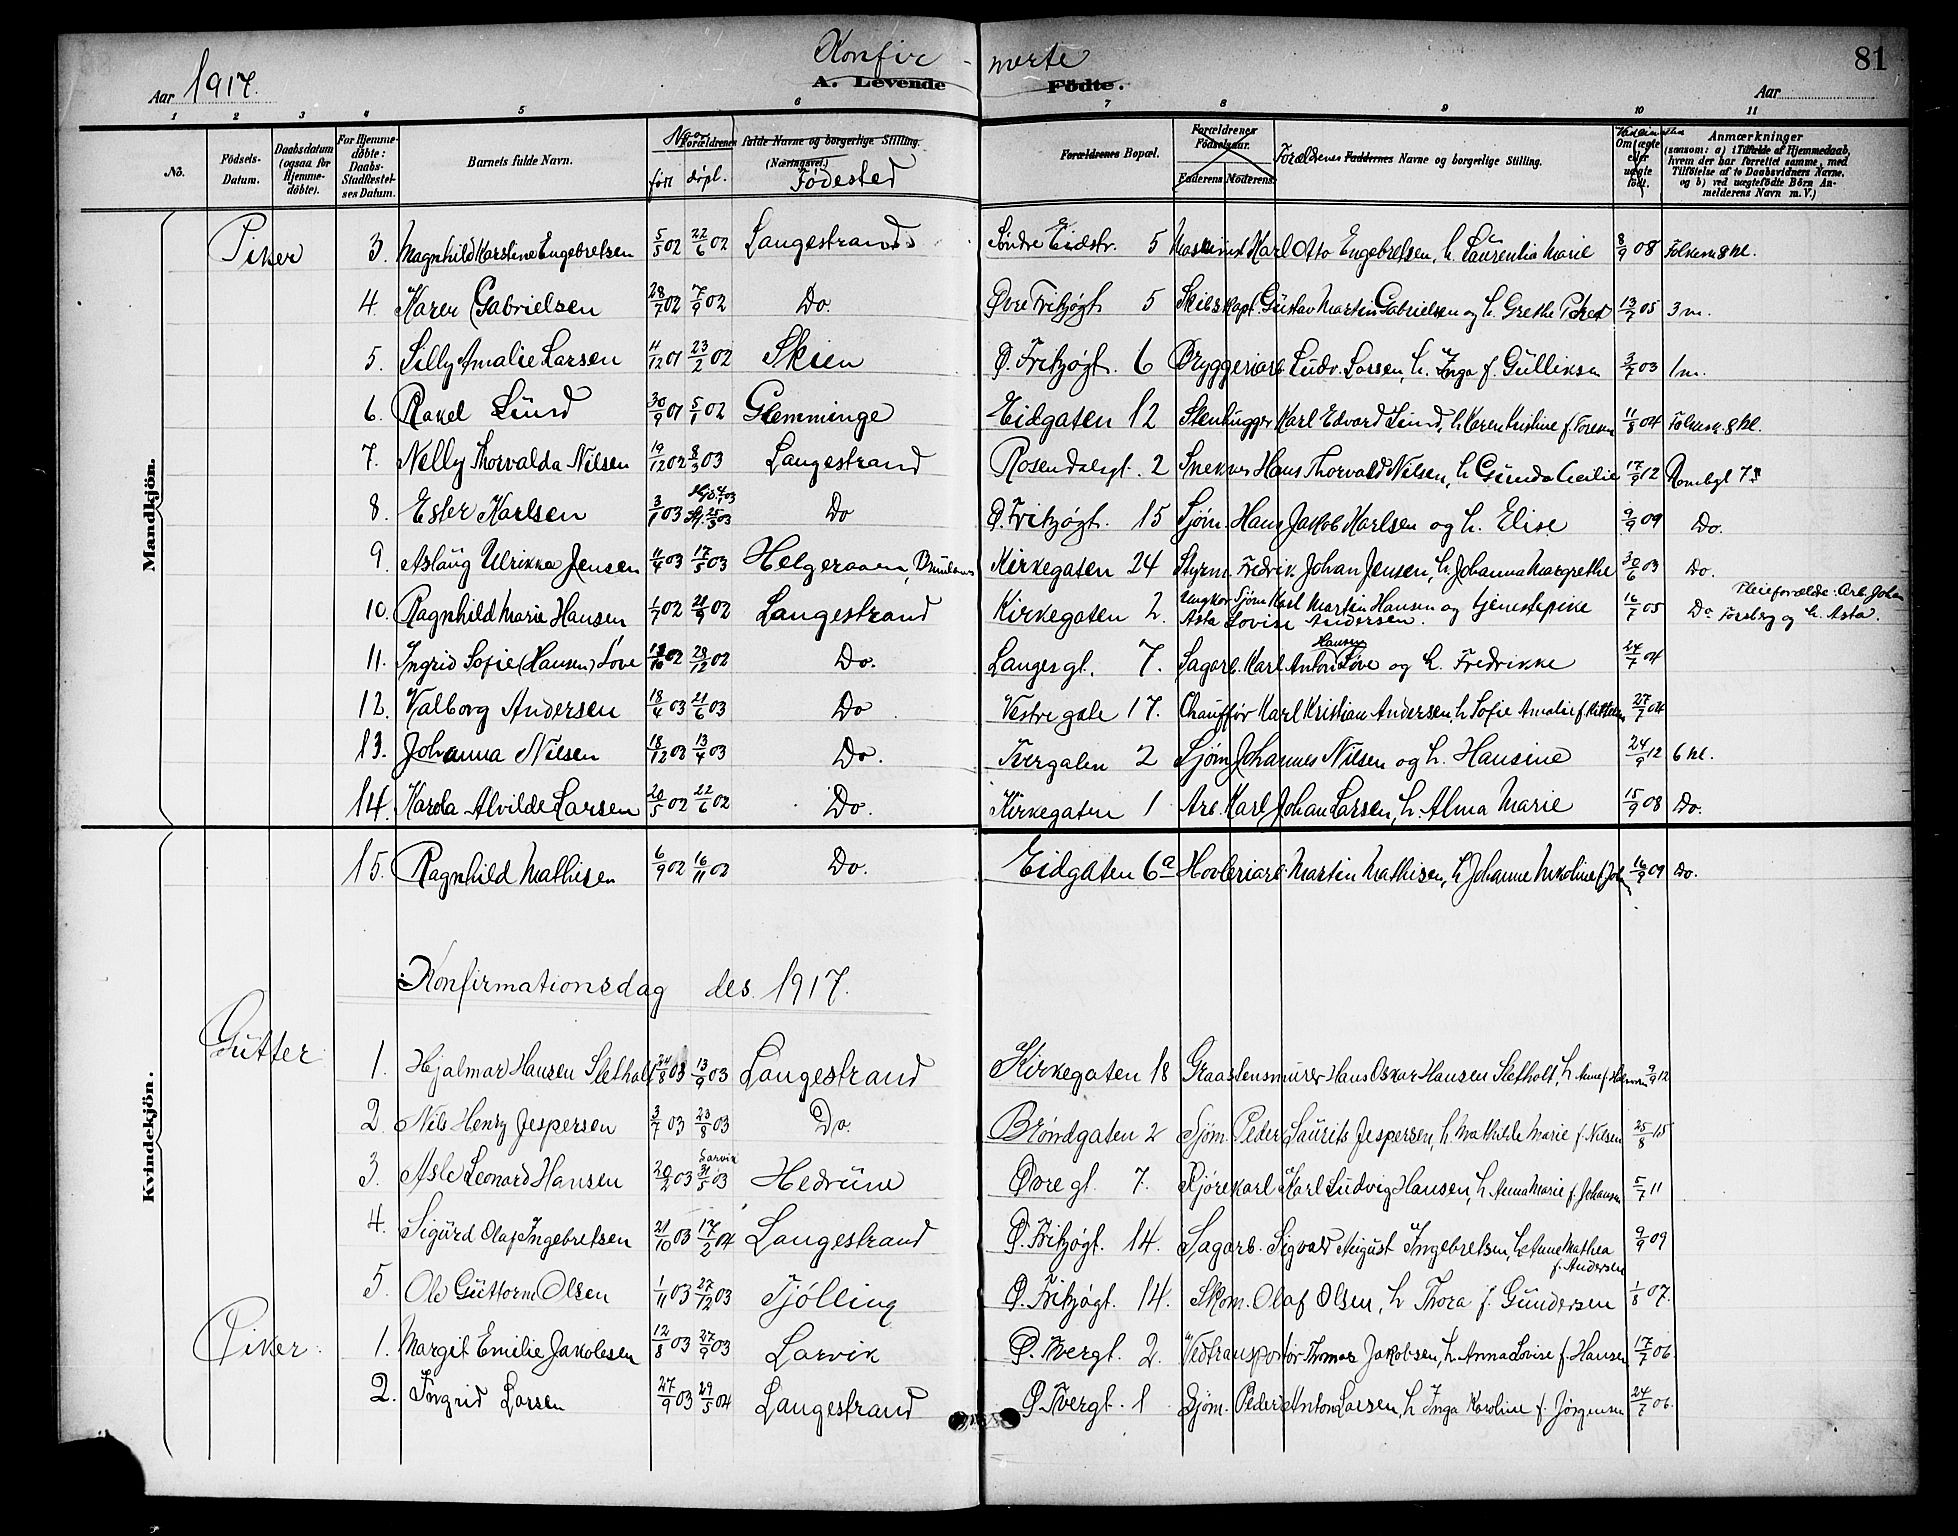 Konfir - merte
81
Aar 1917.
A. Levende Födte.
Aar
1 2 3 4 5 6 7 8 9 10 11
No. Födsels-Datum. Daabsdatum (ogsaa for Hjemme-döbte). For Hjemme-döbte: Daabs-Stadfæstel-ses Datum. Barnets fulde Navn. Naar född döpt. Forældrenes fulde Navne og borgerlige Stilling. (Næringsvei.) Födested Forældrenes Bopæl. Forældrenes Födselsaar. Faderens Moderens Forældrenes Faddernes Navne og borgerlige Stilling. Om ægte eller uægte födt. Anmærkninger (saasom: a) i Tilfælde af Hjemmedaab, hvem der har forrettet samme, med Tilföielse af to Daabsvidners Navne, og b) ved uægtefödte Börn An-melderens Navn m. V.)
Mandkjön.
Piker 3. Magnhild Karstine Engebretsen 5/5 02 22/6 02 Langestrand Söndre Eidstr. 5 Maskinist Karl Otto Engebretsen, h. Laurentia Marie 8/9 08 Folkesk 8 kl.
4. Karen Gabrielsen 28/7 02 7/9 02 Do. Övre Fritzögt. 5 Skibskapt. Gustav Martin Gabrielsen og h. Grethe 13/7 05 3 m.
5. Lilly Amalie Larsen 11/12 01 23/2 02 Skien Ö. Fritzögt. 6 Bryggeriarb. Ludv. Larsen, h. Inga f. Gulliksen 3/7 03 1 m.
6. Rakel Lund 30/9 01 5/1 02 Glemminge Eidgaten 12 Stenhugger Karl Edvard Lund, h. Karen Kristine f. 11/8 04 Folkesk. 8 kl.
7. Nelly Thorvalda Nilsen 19/12 02 8/3 03 Langestrand Rosendalsgt. 2 Snekker Hans Thorvald Nilsen, h. Gunda Cecilie 17/9 12
8. Ester Karlsen 3/1 03 25/3 03 Do Ö. Fritzögt. 15 Sjöm. Hans Jakob Karlsen og h. Elise 9/9 09 Do.
9. Aslaug Ulrikke Jensen 11/4 03 17/5 03 Helgeraaen, Brunlanes Kirkegaten 24 Styrm. Fredrik Johan Jensen, h. Johanna Margrethe 30/6 03 Do.
10. Ragnhild Marie Hansen 1/7 02 21/9 02 Langestrand Kirkegaten 2. Ungkar Sjöm Karl Martin Hansen og tjenestepike Asta Lovise Andersen. 16/7 05 Do Pleieforældre: Arb. Johan Forsberg og h. Asta.
11. Ingrid Sofie (Hansen) Löve 18/10 02 28/12 02 Do. Langesgt. 7. Sagarb. Karl Anton Hansen Löve og h. Fredrikke 24/7 04
12. Valborg Andersen 18/4 03 21/6 03 Do Vestre gate 17. Chaufför Karl Kristian Andersen, h Sofie Amalie f. 27/7 04
13. Johanna Nilsen 18/12 03 13/4 03 Do. Tvergaten 2 Sjöm Johannes Nilsen og h. Hansine 24/9 12 6 kl.
14. Karola Alvilde Larsen 20/5 02 22/6 02 Do. Kirkegaten 1 Arb. Karl Johan Larsen, h. Alma Marie 15/9 08 Do.
Kvindekjön.
15. Ragnhild Mathisen 6/9 02 16/11 02 Do. Eidgaten 6a Hövleriarb. Martin Mathisen, h Johanne Nikoline f. Joh 16/9 09 Do.
Konfirmationsdag des. 1917.
Gutter 1. Hjalmar Hansen Sletholt 24/8 03 13/9 03 Langestrand Kirkegaten 18 Graastensmurer Hans Oskar Hansen Sletholt, h. Anne f. 9/9 12
2. Nils Henry Jespersen 3/7 03 23/8 03 Do. Bröndgaten 2 Sjöm. Peder Laurits Jespersen, h. Mathilde Marie f. Nilsen 25/8 15
3. Asle Leonard Hansen 20/2 03 Larvik 31/5 03 Hedrum Övre gt. 7. Kjörekarl Karl Ludvig Hansen, h Anna Marie f. Johansen 5/7 11
4. Sigurd Olaf Ingebretsen 21/10 03 17/2 04 Langestrand Ö. Fritzögt. 14. Sagarb. Sigvald August Ingebretsen, h. Anne Mathea f. Andersen 9/9 09
5. Ole Guttorm Olsen 1/11 03 27/12 03 Tjölling Ö. Fritzögt. 14. Skom. Olaf Olsen, h Thora f. Gundersen 1/8 07.
Piker. 1. Margit Emilie Jakobsen 12/8 03 27/9 03 Larvik Ö. Tvergt. 2. Vedtransportör Thomas Jakobsen, h. Anna Lovise f. Hansen 17/7 06.
2. Ingrid Larsen 27/9 03 29/5 04 Langestrand Ö. Tvergt. 1 Sjöm. Peder Anton Larsen, h Inga Karoline f. Jörgensen 24/7 06.